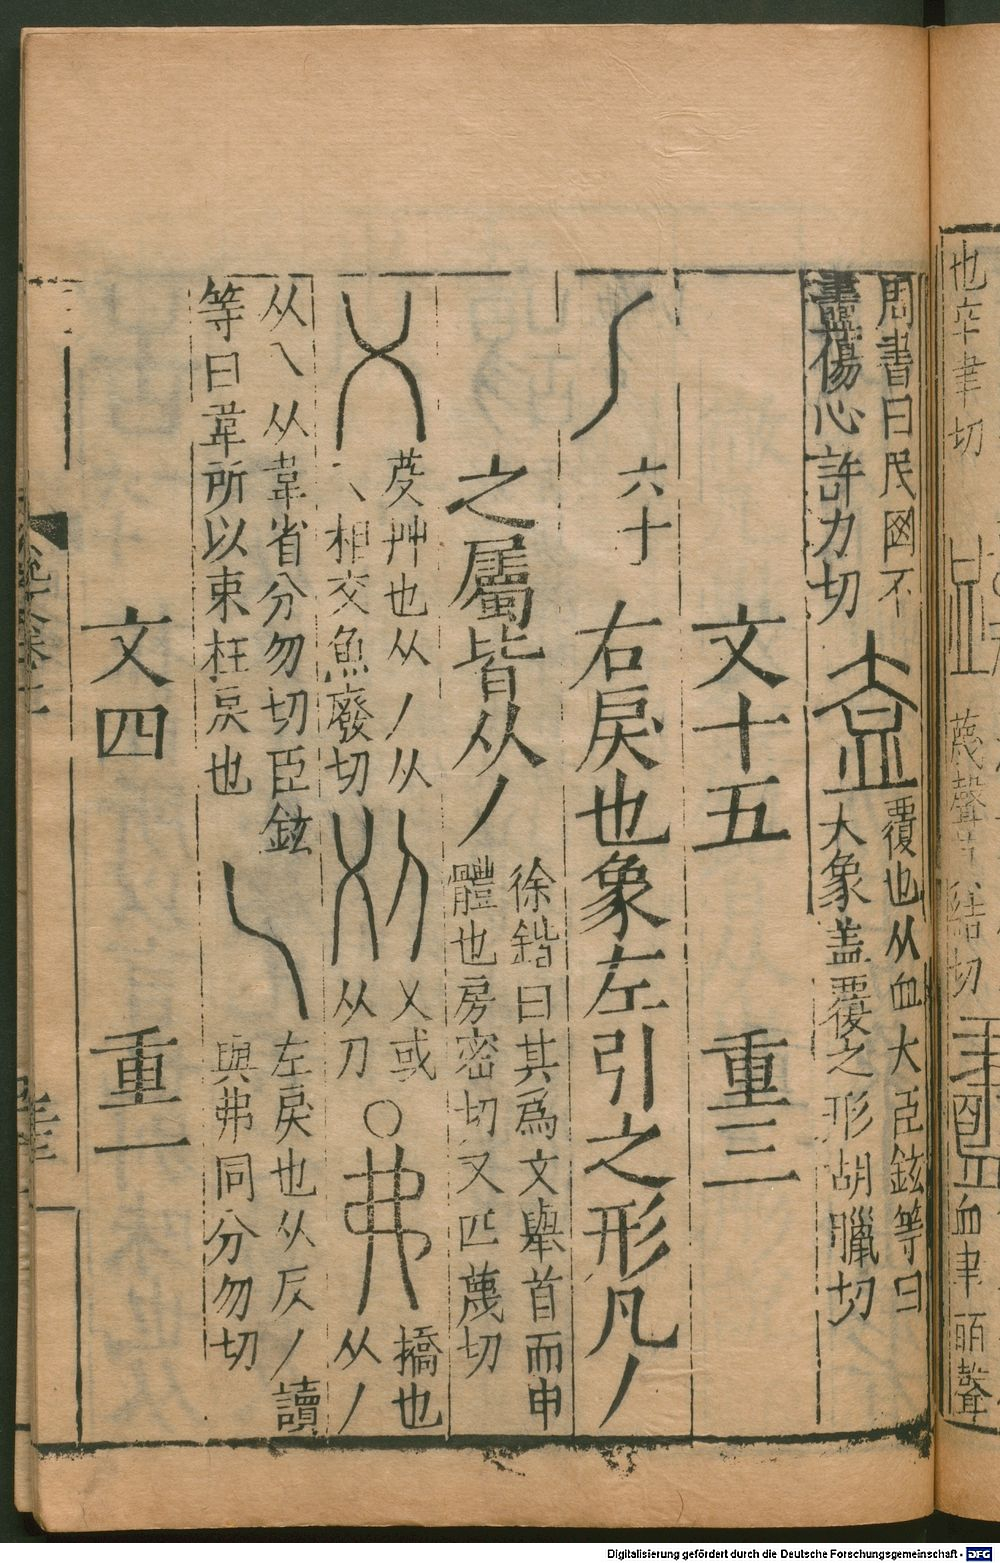 也卒聿切
蔑聲莫結切
血聿皕聲
周書曰民罔不
𧗕傷心許力切
盇
覆也从血大臣鉉等曰
大象蓋覆之形胡臘切
文十五 重三
丿 六十 右戾也象左引之形凡丿
之屬皆从丿
徐鍇曰其爲文舉首而申
體也房密切又匹蔑切
乂
芟艸也从丿从
乀相交魚廢切
刈
乂或
从刀
○
弗
撟也
从丿
从乀从韋省分勿切臣鉉
等曰韋所以束枉戾也
乀
左戾也从反丿讀
與弗同分勿切
文四 重一
Digitalisierung gefördert durch die Deutsche Forschungsgemeinschaft - DFG